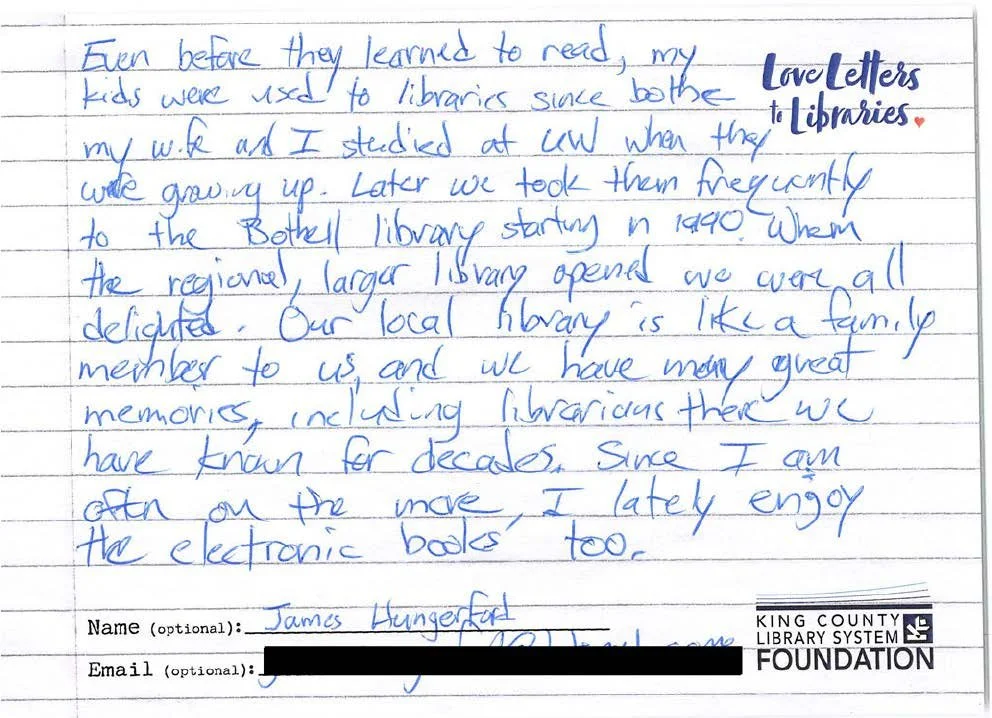 Even before they learned to read, my
kids were used to libraries since bothe
my wife and I studied at UW when they
were growing up. Later we took them frequently
to the Bothell library starting in 1990. When
the regional, larger library opened we were all
delighted. Our local library is like a family
member to us, and we have many great
memories, including librarians there we
have known for decades. Since I am
often on the move, I lately enjoy
the electronic books too.
Love Letters
to Libraries.
Name (optional): James Hungerford
Email (optional):
KING COUNTY
LIBRARY SYSTEM
FOUNDATION